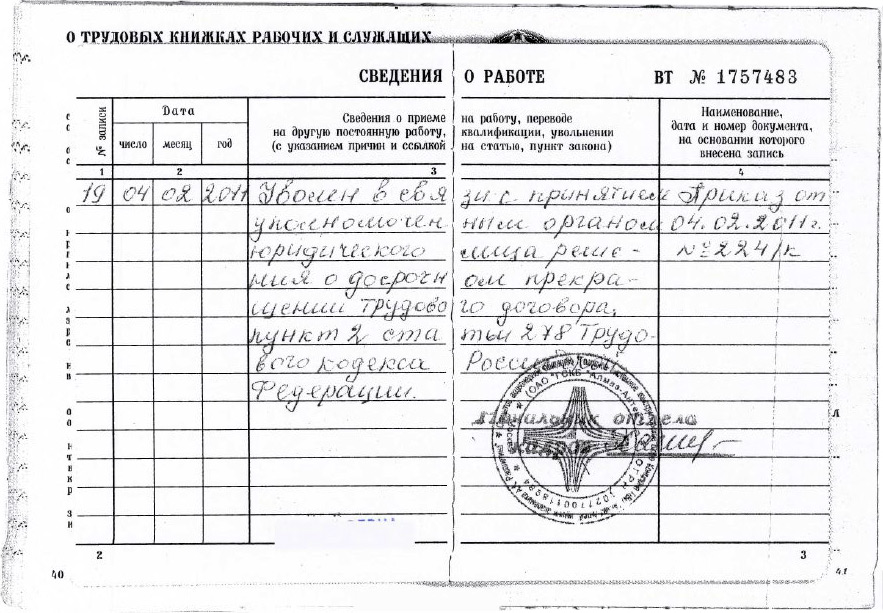 О ТРУДОВЫХ КНИЖКАХ РАБОЧИХ И СЛУЖАЩИХ
СВЕДЕНИЯ О РАБОТЕ ВТ № 1757483
№ записи
Дата
число месяц год
Сведения о приеме на работу, переводе
на другую постоянную работу, квалификации, увольнении
(с указанием причин и ссылкой на статью, пункт закона)
Наименование,
дата и номер документа,
на основании которого
внесена запись
1 2 3 4
19 04 02 2011 Уволен в связи с принятием Приказ от
уполномоченным органом 04.02.2011г.
юридического лица реше- №224/к
ния о досрочном прекра-
щении трудового договора,
пункт 2 статьи 278 Трудо-
вого кодекса Российской
Федерации.
Начальник отдела
кадров
(ОАО "ГСКБ "Алмаз-Антей"
2 3
40 41